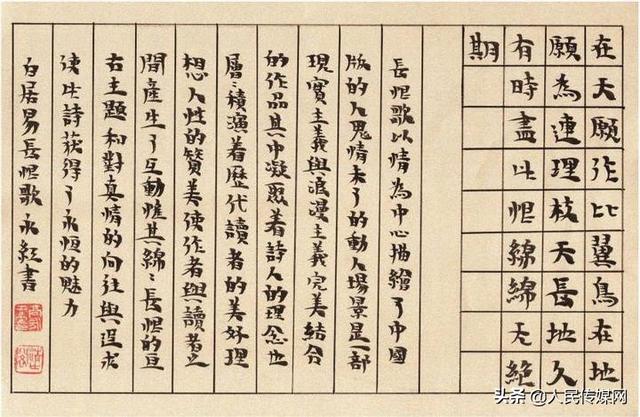 在天願作比翼鳥在地
願為連理枝天長地久
有時盡此恨綿綿无絕
期
長恨歌以情為中心描繪了中國
版的人鬼情未了的動人場景是一部
現實主義與浪漫主義完美結合
的作品其中凝聚着詩人的理念也
層〻積演着歷代讀者的美好理
想人性的贊美使作者與讀者之
間產生了互動惟其綿〻長恨的亘
古主題和對真情的向往與追求
使此詩获得了永恒的魅力
白居易長恨歌永紅書
头条 @人民传媒网